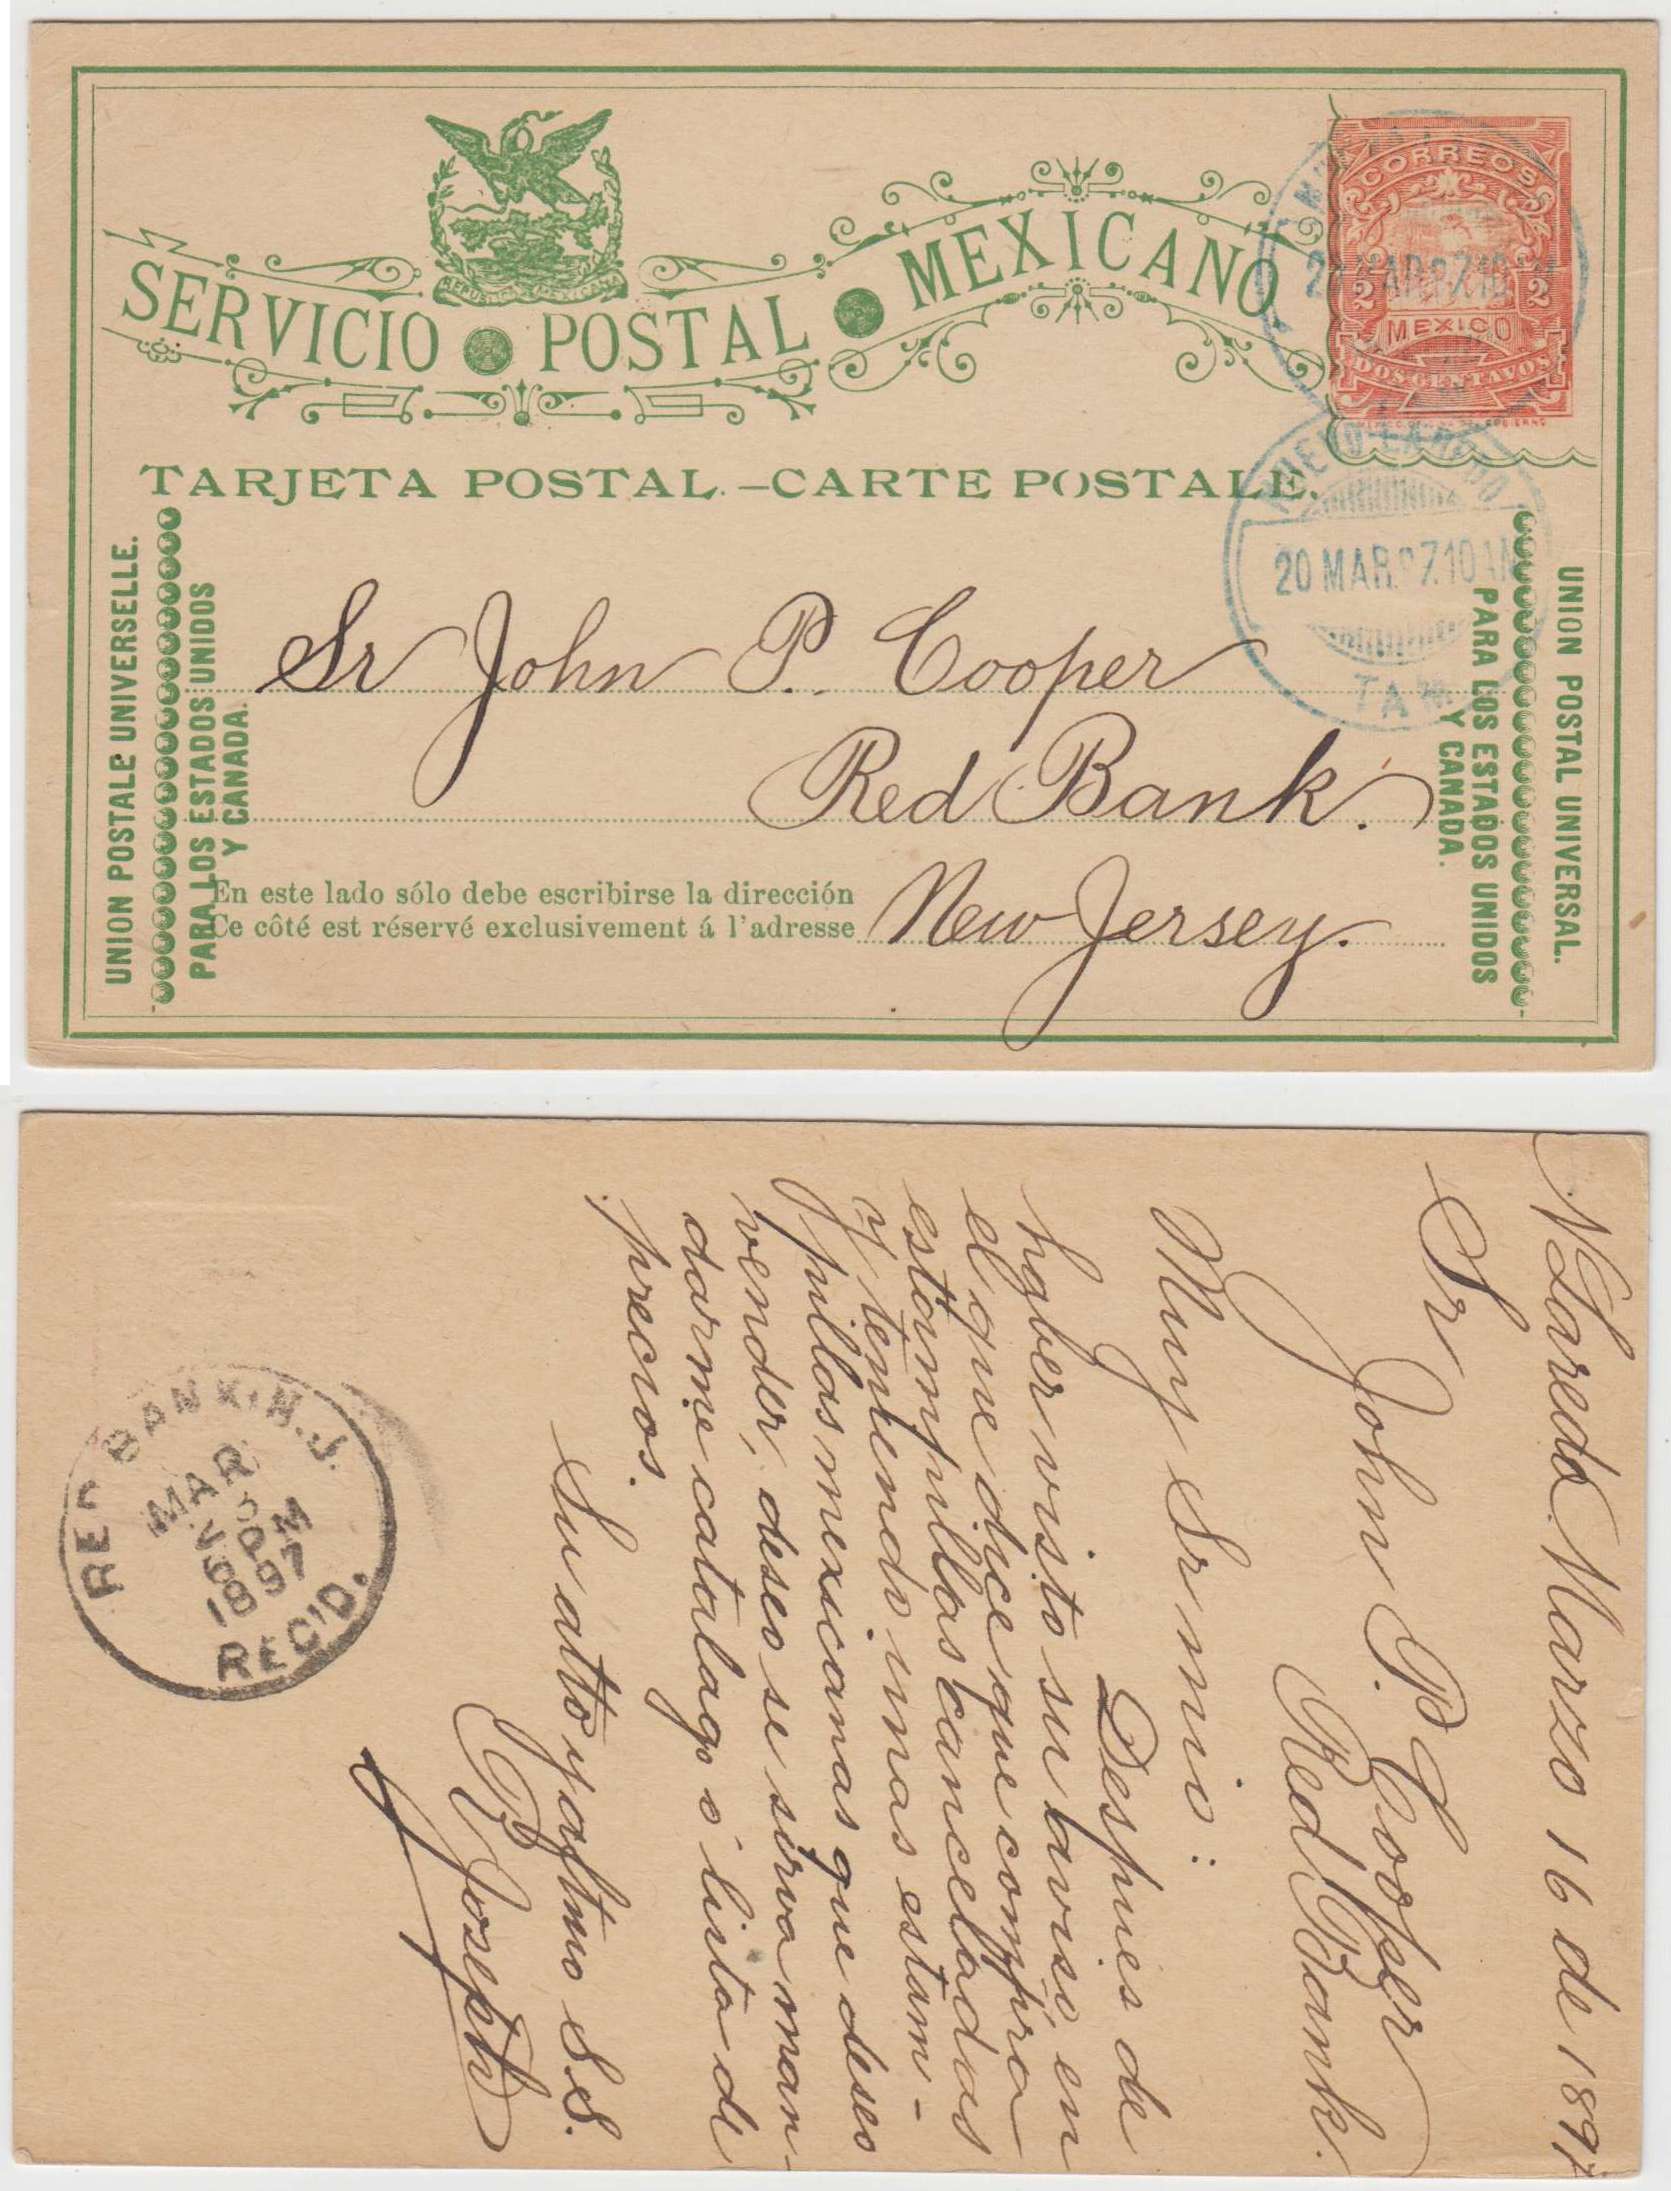 REPUBLICA MEXICANA
SERVICIO POSTAL MEXICANO
CORREOS
2 2
MEXICO
DOS CENTAVOS
TARJETA POSTAL.—CARTE POSTALE.
NUEVO LAREDO
20 MAR. 97. 10 AM
TAM.
UNION POSTALE UNIVERSELLE.
PARA LOS ESTADOS UNIDOS
Y CANADA.
UNION POSTAL UNIVERSAL.
PARA LOS ESTADOS UNIDOS
Y CANADA.
Sr John P. Cooper
Red Bank.
En este lado sólo debe escribirse la dirección
Ce côté est réservé exclusivement á l'adresse
New Jersey.
N Laredo Marzo 16 de 1897
Sr John P. Cooper
Red Bank.
Muy Sr mio:
Despues de
haber visto su aviso, en
el que dice que compra
estampillas canceladas
y teniendo unas estam-
pillas mexicanas que deseo
vender, deseo se sirva man-
darme catalago ó lista de
precios.
Su atto y afmo S.S.
P Joseph
RED BANK, N.J.
MAR
6 PM
1897
REC'D.